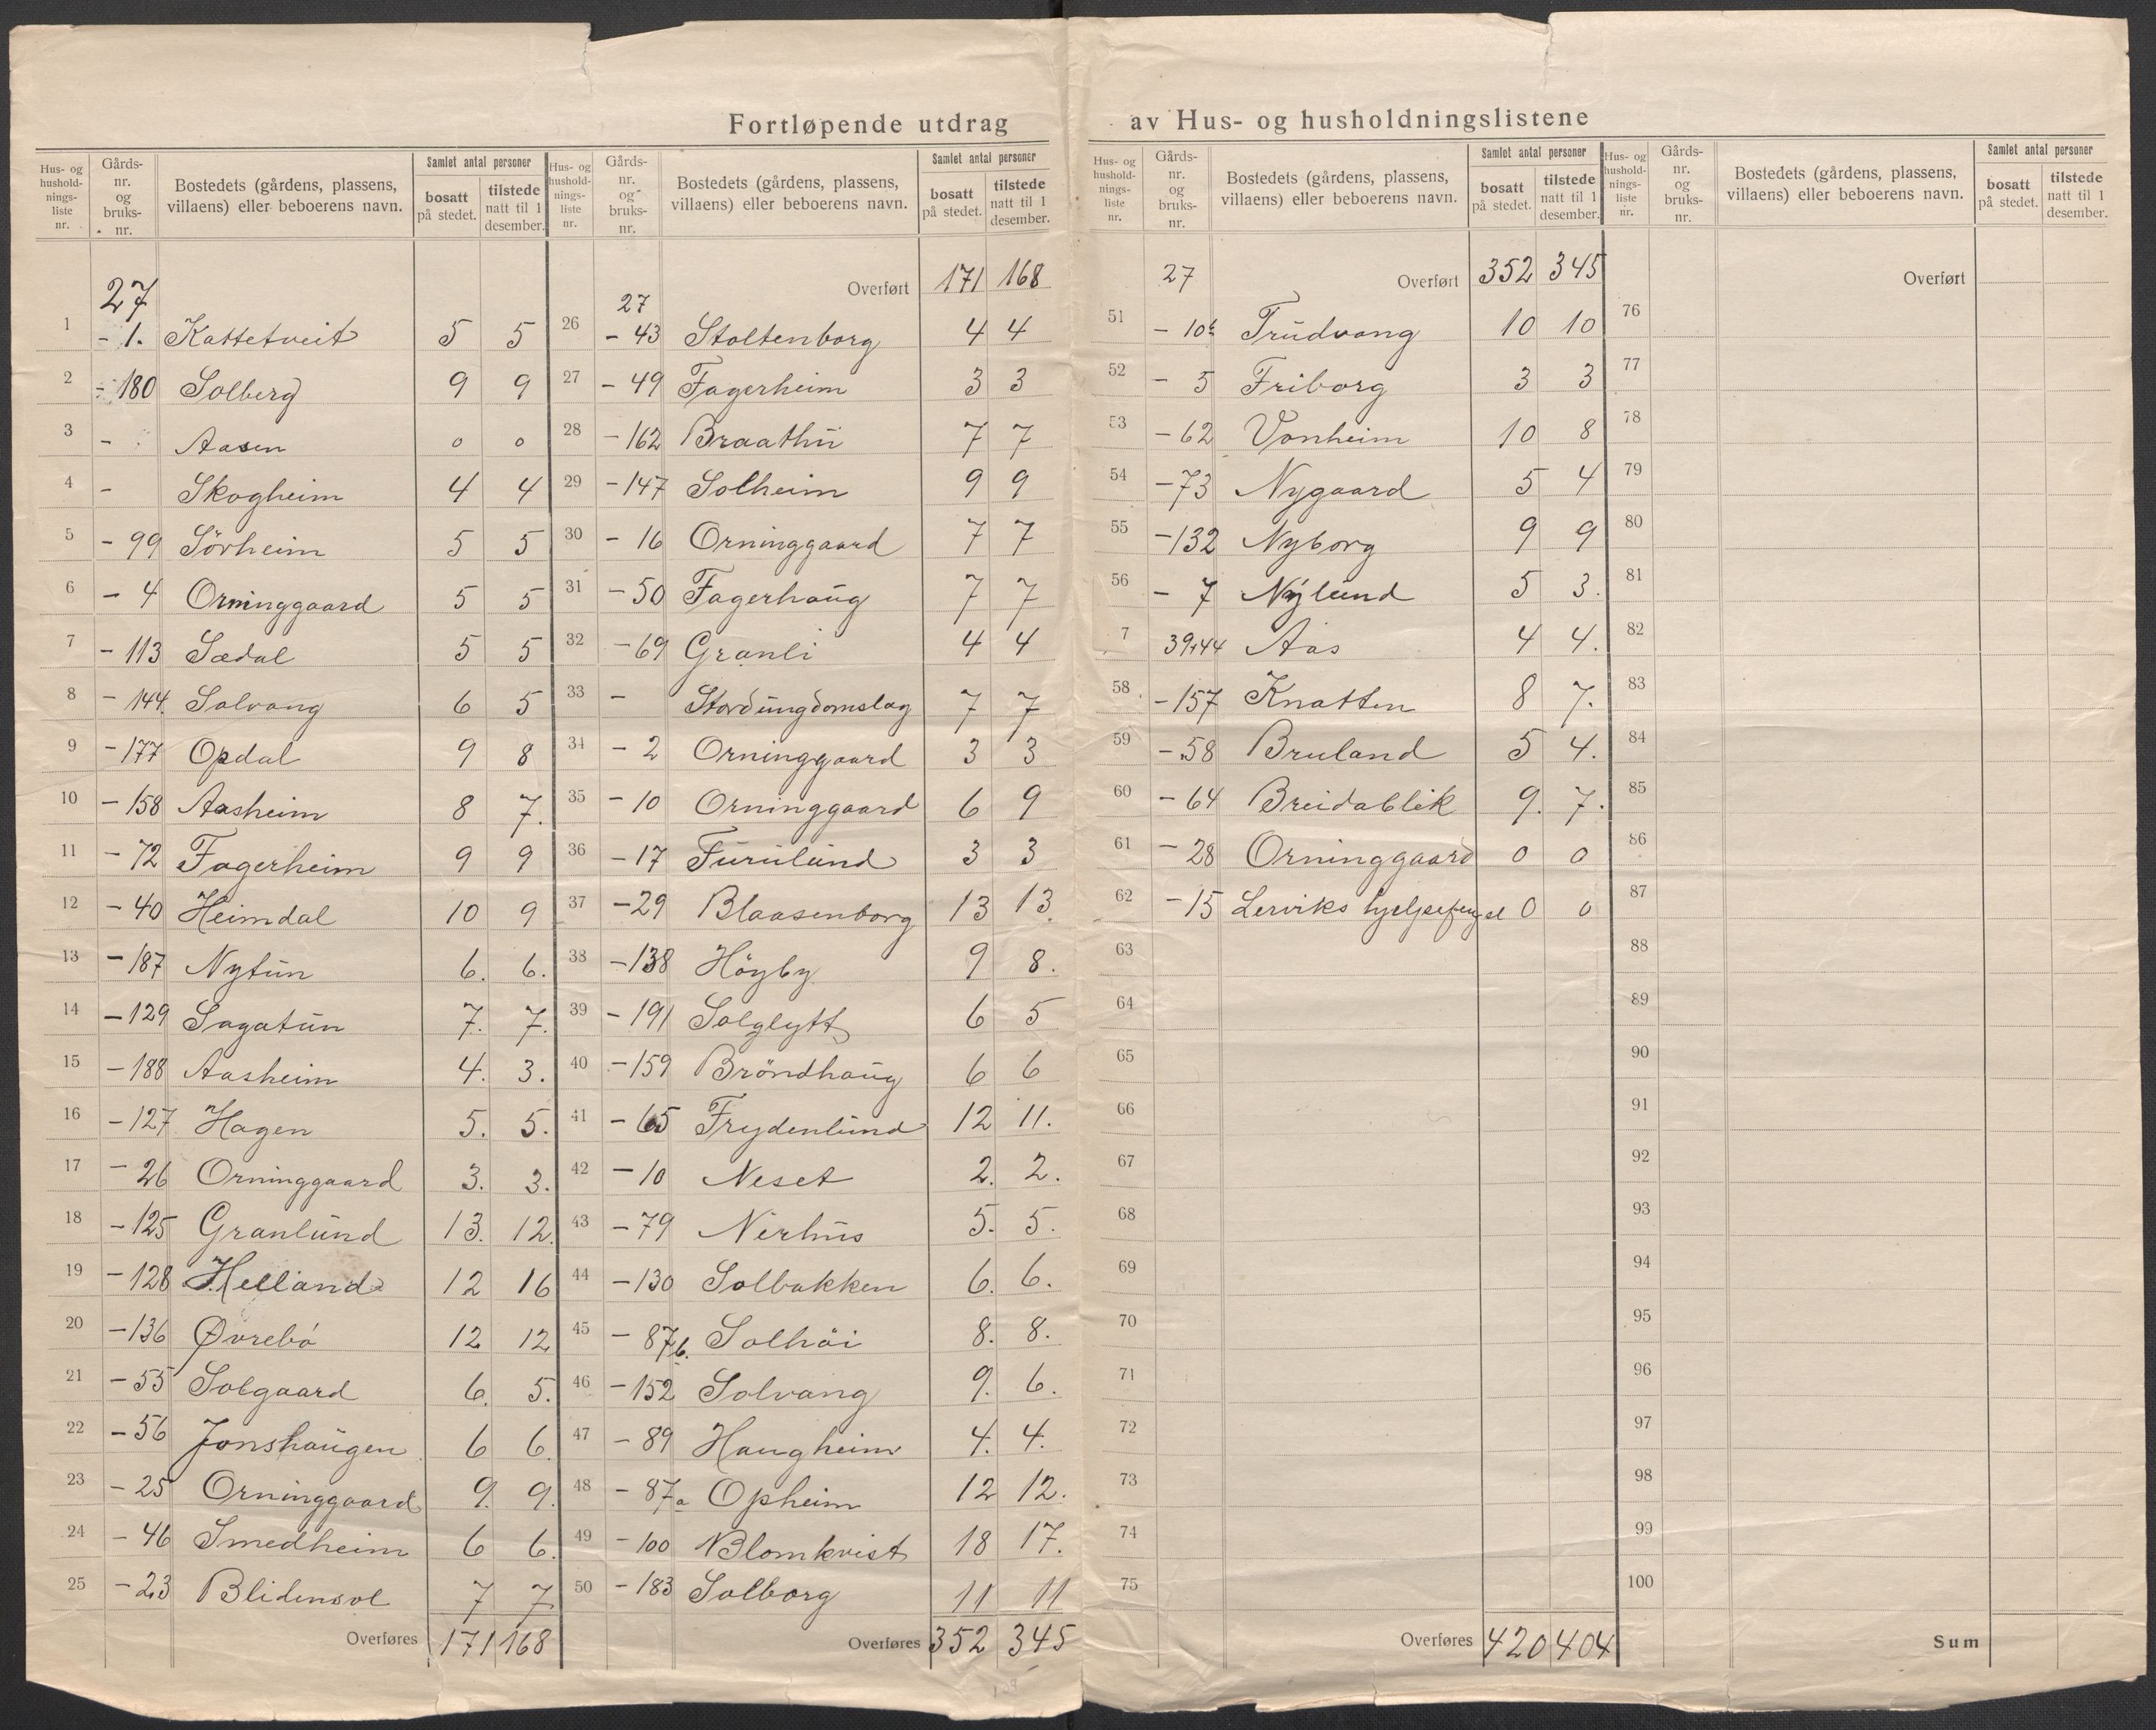 Fortløpende utdrag av Hus- og husholdningslistene
Hus- og hushold-nings-liste nr. | Gårds-nr. og bruks-nr. | Bostedets (gårdens, plassens, villaens) eller beboerens navn. | Samlet antal personer | bosatt på stedet. | tilstede natt til 1 desember.
27
1 - 1. Kattetveit 5 5
2 - 180 Solberg 9 9
3 - Aasen 0 0
4 - Skogheim 4 4
5 - 99 Sörheim 5 5
6 - 4 Orninggaard 5 5
7 - 113 Sædal 5 5
8 - 144. Solvang 6 5
9 - 177 Opdal 9 8
10 - 158 Aasheim 8 7.
11 - 72 Fagerheim 9 9
12 - 40 Heimdal 10 9
13 - 187 Nytun 6. 6.
14 - 129 Sagatun 7. 7.
15 - 188 Aasheim 4. 3.
16 - 127 Hagen 5. 5.
17 - 26 Orninggaard 3. 3.
18 - 125 Granlund 13. 12.
19 - 128 Helland 12 16
20 - 136 Øvrebö 12 12
21 - 55 Solgaard 6. 5.
22 - 56 Jonshaugen 6 6.
23 - 25 Orninggaard 9. 9.
24 - 46 Smedheim 6 6.
25 - 23 Blidensol 7 7
Overføres 171 168
Hus- og hushold-nings-liste nr. | Gårds-nr. og bruks-nr. | Bostedets (gårdens, plassens, villaens) eller beboerens navn. | Samlet antal personer | bosatt på stedet. | tilstede natt til 1 desember.
Overført 171 168
27
26 - 43 Stoltenborg 4 4
27 - 49 Fagerheim 3 3
28 - 162 Braathu 7 7
29 - 147 Solheim 9 9
30 - 16 Orninggaard 7 7
31 - 50 Fagerhaug 7 7
32 - 69 Granli 4 4
33 - Stordungdomslag 7 7
34 - 2 Orninggaard 3 3
35 - 10 Orninggaard 6 9
36 - 17 Furulund 3 3
37 - 29 Blaasenborg 13 13
38 - 138 Höyby 9 8.
39 - 191 Solglytt 6 5
40 - 159 Bröndhaug 6 6
41 - 65 Frydenlund 12 11.
42 - 10 Neset 2. 2.
43 - 79 Nerhus 5. 5.
44 - 130 Solbakken 6. 6.
45 - 87b. Solhöi 8. 8.
46 - 152 Solvang 9. 6.
47 - 89 Haugheim 4. 4.
48 - 87a Opheim 12 12.
49 - 100 Blomkvist 18 17.
50 - 183 Solborg 11 11
Overføres 352 345
Hus- og hushold-nings-liste nr. | Gårds-nr. og bruks-nr. | Bostedets (gårdens, plassens, villaens) eller beboerens navn. | Samlet antal personer | bosatt på stedet. | tilstede natt til 1 desember.
27 Overført 352 345
51 Trudvang 10 10
52 - 5 Friborg 3 3
53 - 62 Vonheim 10 8
54 - 73 Nygaard 5 4
55 - 132 Nyborg 9 9
56 - 7 Nylund 5 3.
7 39+44 Aas 4 4.
58 - 157 Knatten 8 7.
59 - 58 Bruland 5 4.
60 - 64 Breidablik 9. 7.
61 - 28 Orninggaard 0 0
62 - 15 Lerviks hjelpefengsel 0 0
63
64
65
66
67
68
69
70
71
72
73
74
75
Overføres 420 404
Hus- og hushold-nings-liste nr. | Gårds-nr. og bruks-nr. | Bostedets (gårdens, plassens, villaens) eller beboerens navn. | Samlet antal personer | bosatt på stedet. | tilstede natt til 1 desember.
Overført
76
77
78
79
80
81
82
83
84
85
86
87
88
89
90
91
92
93
94
95
96
97
98
99
100
Sum